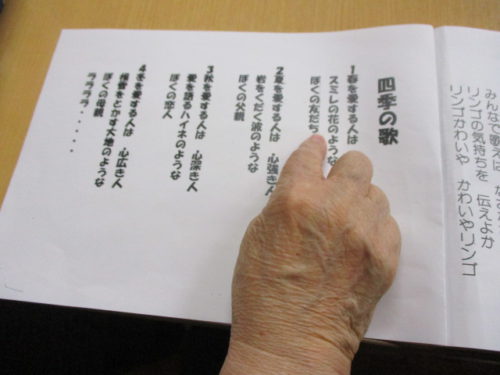 みんなで歌えば
リンゴの気持ちを 伝えよか
リンゴかわいや かわいやリンゴ
四季の歌
1春を愛する人は
スミレの花のような
ぼくの友だち
2夏を愛する人は 心強き人
岩をくだく波のような
ぼくの父親
3秋を愛する人は 心深き人
愛を語るハイネのような
ぼくの恋人
4冬を愛する人は 心広き人
根雪をとかす大地のような
ぼくの母親
ララララ・・・・・・